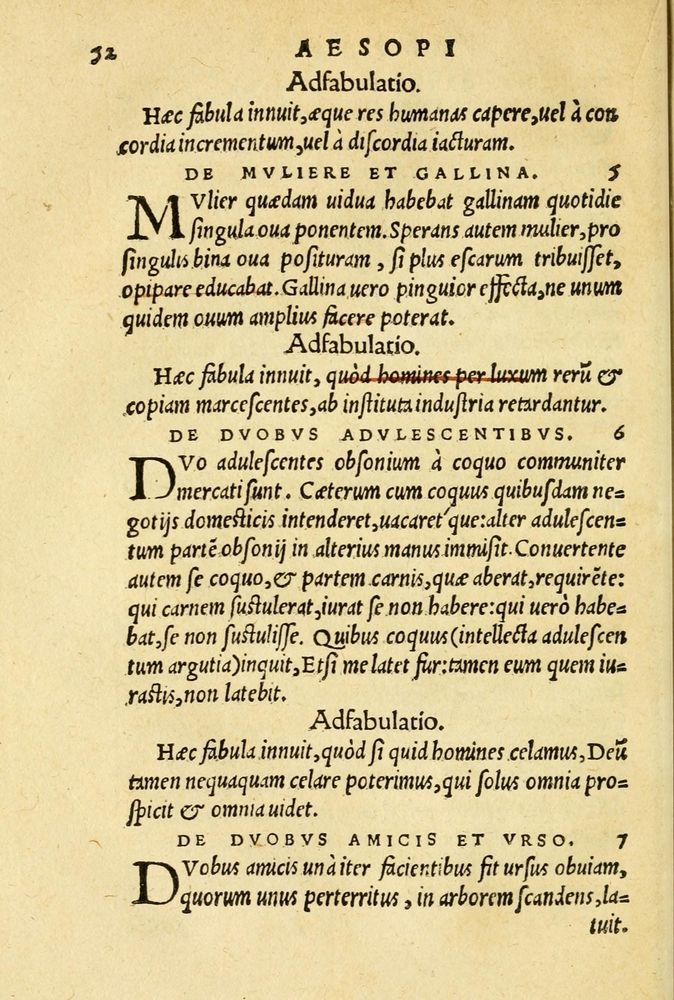 52 AESOPI
Adfabulatio.
Hæc fabula innuit, æque res humanas capere, uel à con
cordia incrementum, uel à discordia iacturam.
DE MVLIERE ET GALLINA. 5
MVlier quædam uidua habebat gallinam quotidie
singula oua ponentem. Sperans autem mulier, pro
singulis bina oua posituram, si plus escarum tribuisset,
opipare educabat. Gallina uero pinguior effecta, ne unum
quidem ouum amplius facere poterat.
Adfabulatio.
Hæc fabula innuit, quòd homines per luxum rerũ &
copiam marcescentes, ab instituta industria retardantur.
DE DVOBVS ADVLESCENTIBVS. 6
DVo adulescentes obsonium à coquo communiter
mercati sunt. Cæterum cum coquus quibusdam ne=
gotijs domesticis intenderet, uacaret´que: alter adulescen=
tum partẽ obsonij in alterius manus immisit. Conuertente
autem se coquo, & partem carnis, quæ aberat, requirẽte:
qui carnem sustulerat, iurat se non habere: qui uerò habe=
bat, se non sustulisse. Quibus coquus (intellecta adulescen
tum argutia) inquit, Etsi me latet fur: tamen eum quem iu=
rastis, non latebit.
Adfabulatio.
Hæc fabula innuit, quòd si quid homines celamus, Deũ
tamen nequaquam celare poterimus, qui solus omnia pro=
spicit & omnia uidet.
DE DVOBVS AMICIS ET VRSO. 7
DVobus amicis unà iter facientibus fit ursus obuiam,
quorum unus perterritus, in arborem scandens, la=
tuit.